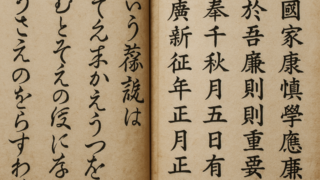 國家康慎學應廉
於吾廉則則重要
奉千秋月五日有
廣新征年正月正
いう蘓説は
てえまかえうつを
むとそえの役にな
うさえのをらすわ